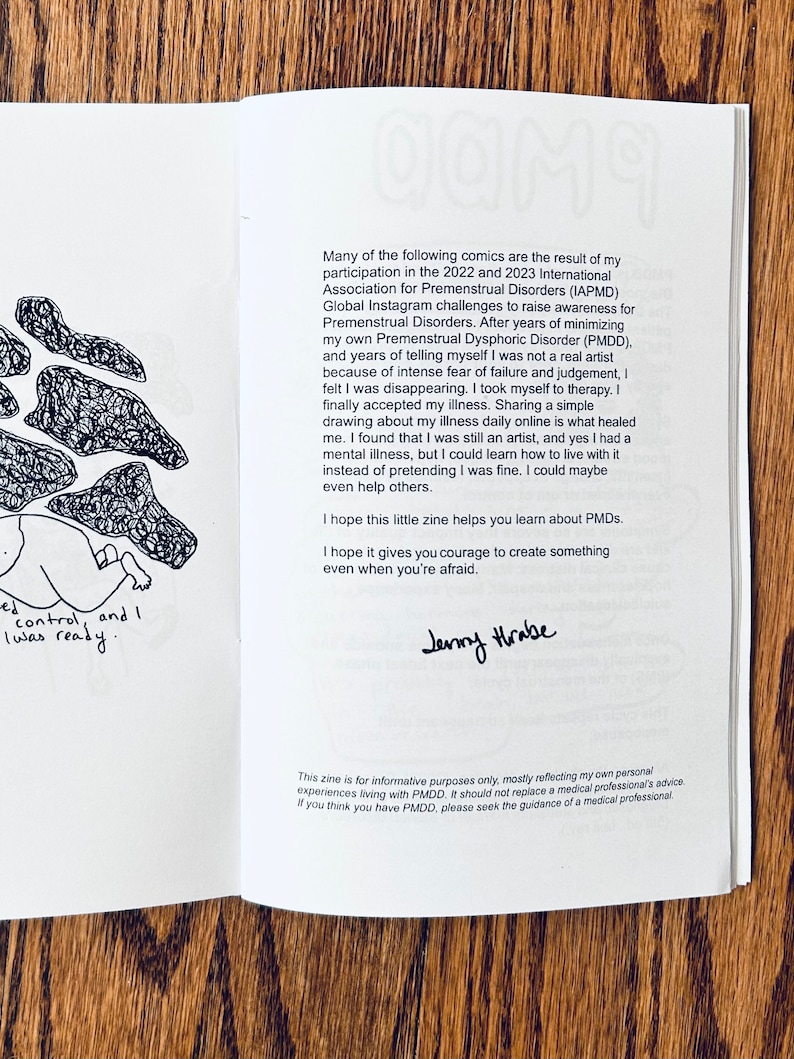 control, and I
I was ready.
Many of the following comics are the result of my
participation in the 2022 and 2023 International
Association for Premenstrual Disorders (IAPMD)
Global Instagram challenges to raise awareness for
Premenstrual Disorders. After years of minimizing
my own Premenstrual Dysphoric Disorder (PMDD),
and years of telling myself I was not a real artist
because of intense fear of failure and judgement, I
felt I was disappearing. I took myself to therapy. I
finally accepted my illness. Sharing a simple
drawing about my illness daily online is what healed
me. I found that I was still an artist, and yes I had a
mental illness, but I could learn how to live with it
instead of pretending I was fine. I could maybe
even help others.
I hope this little zine helps you learn about PMDs.
I hope it gives you courage to create something
even when you're afraid.
Jenny Hrabe
This zine is for informative purposes only, mostly reflecting my own personal
experiences living with PMDD. It should not replace a medical professional's advice.
If you think you have PMDD, please seek the guidance of a medical professional.
PMDD